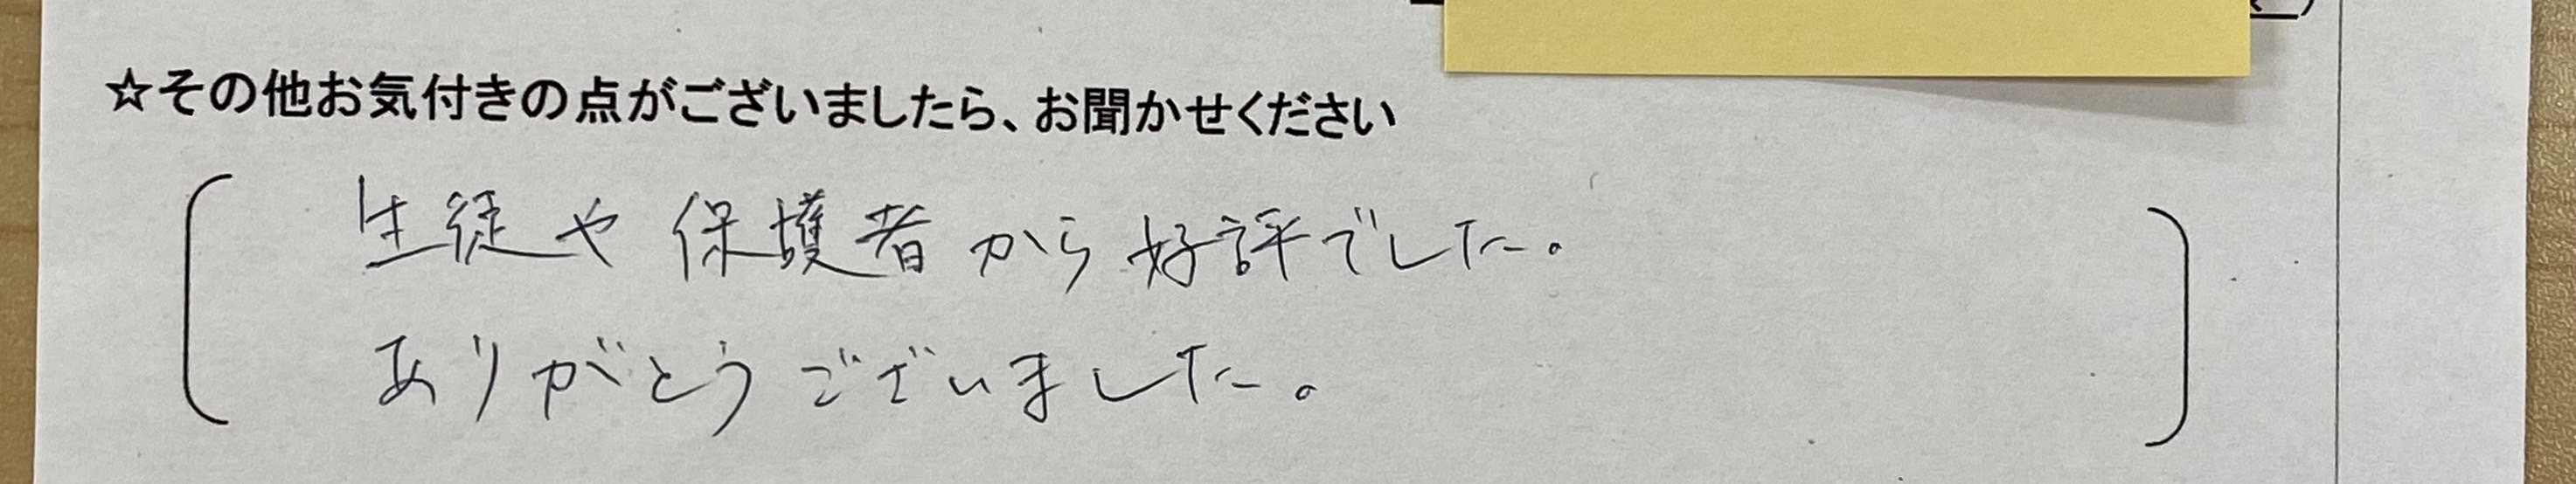 ☆その他お気付きの点がございましたら、お聞かせください
生徒や保護者から好評でした。
ありがとうございました。